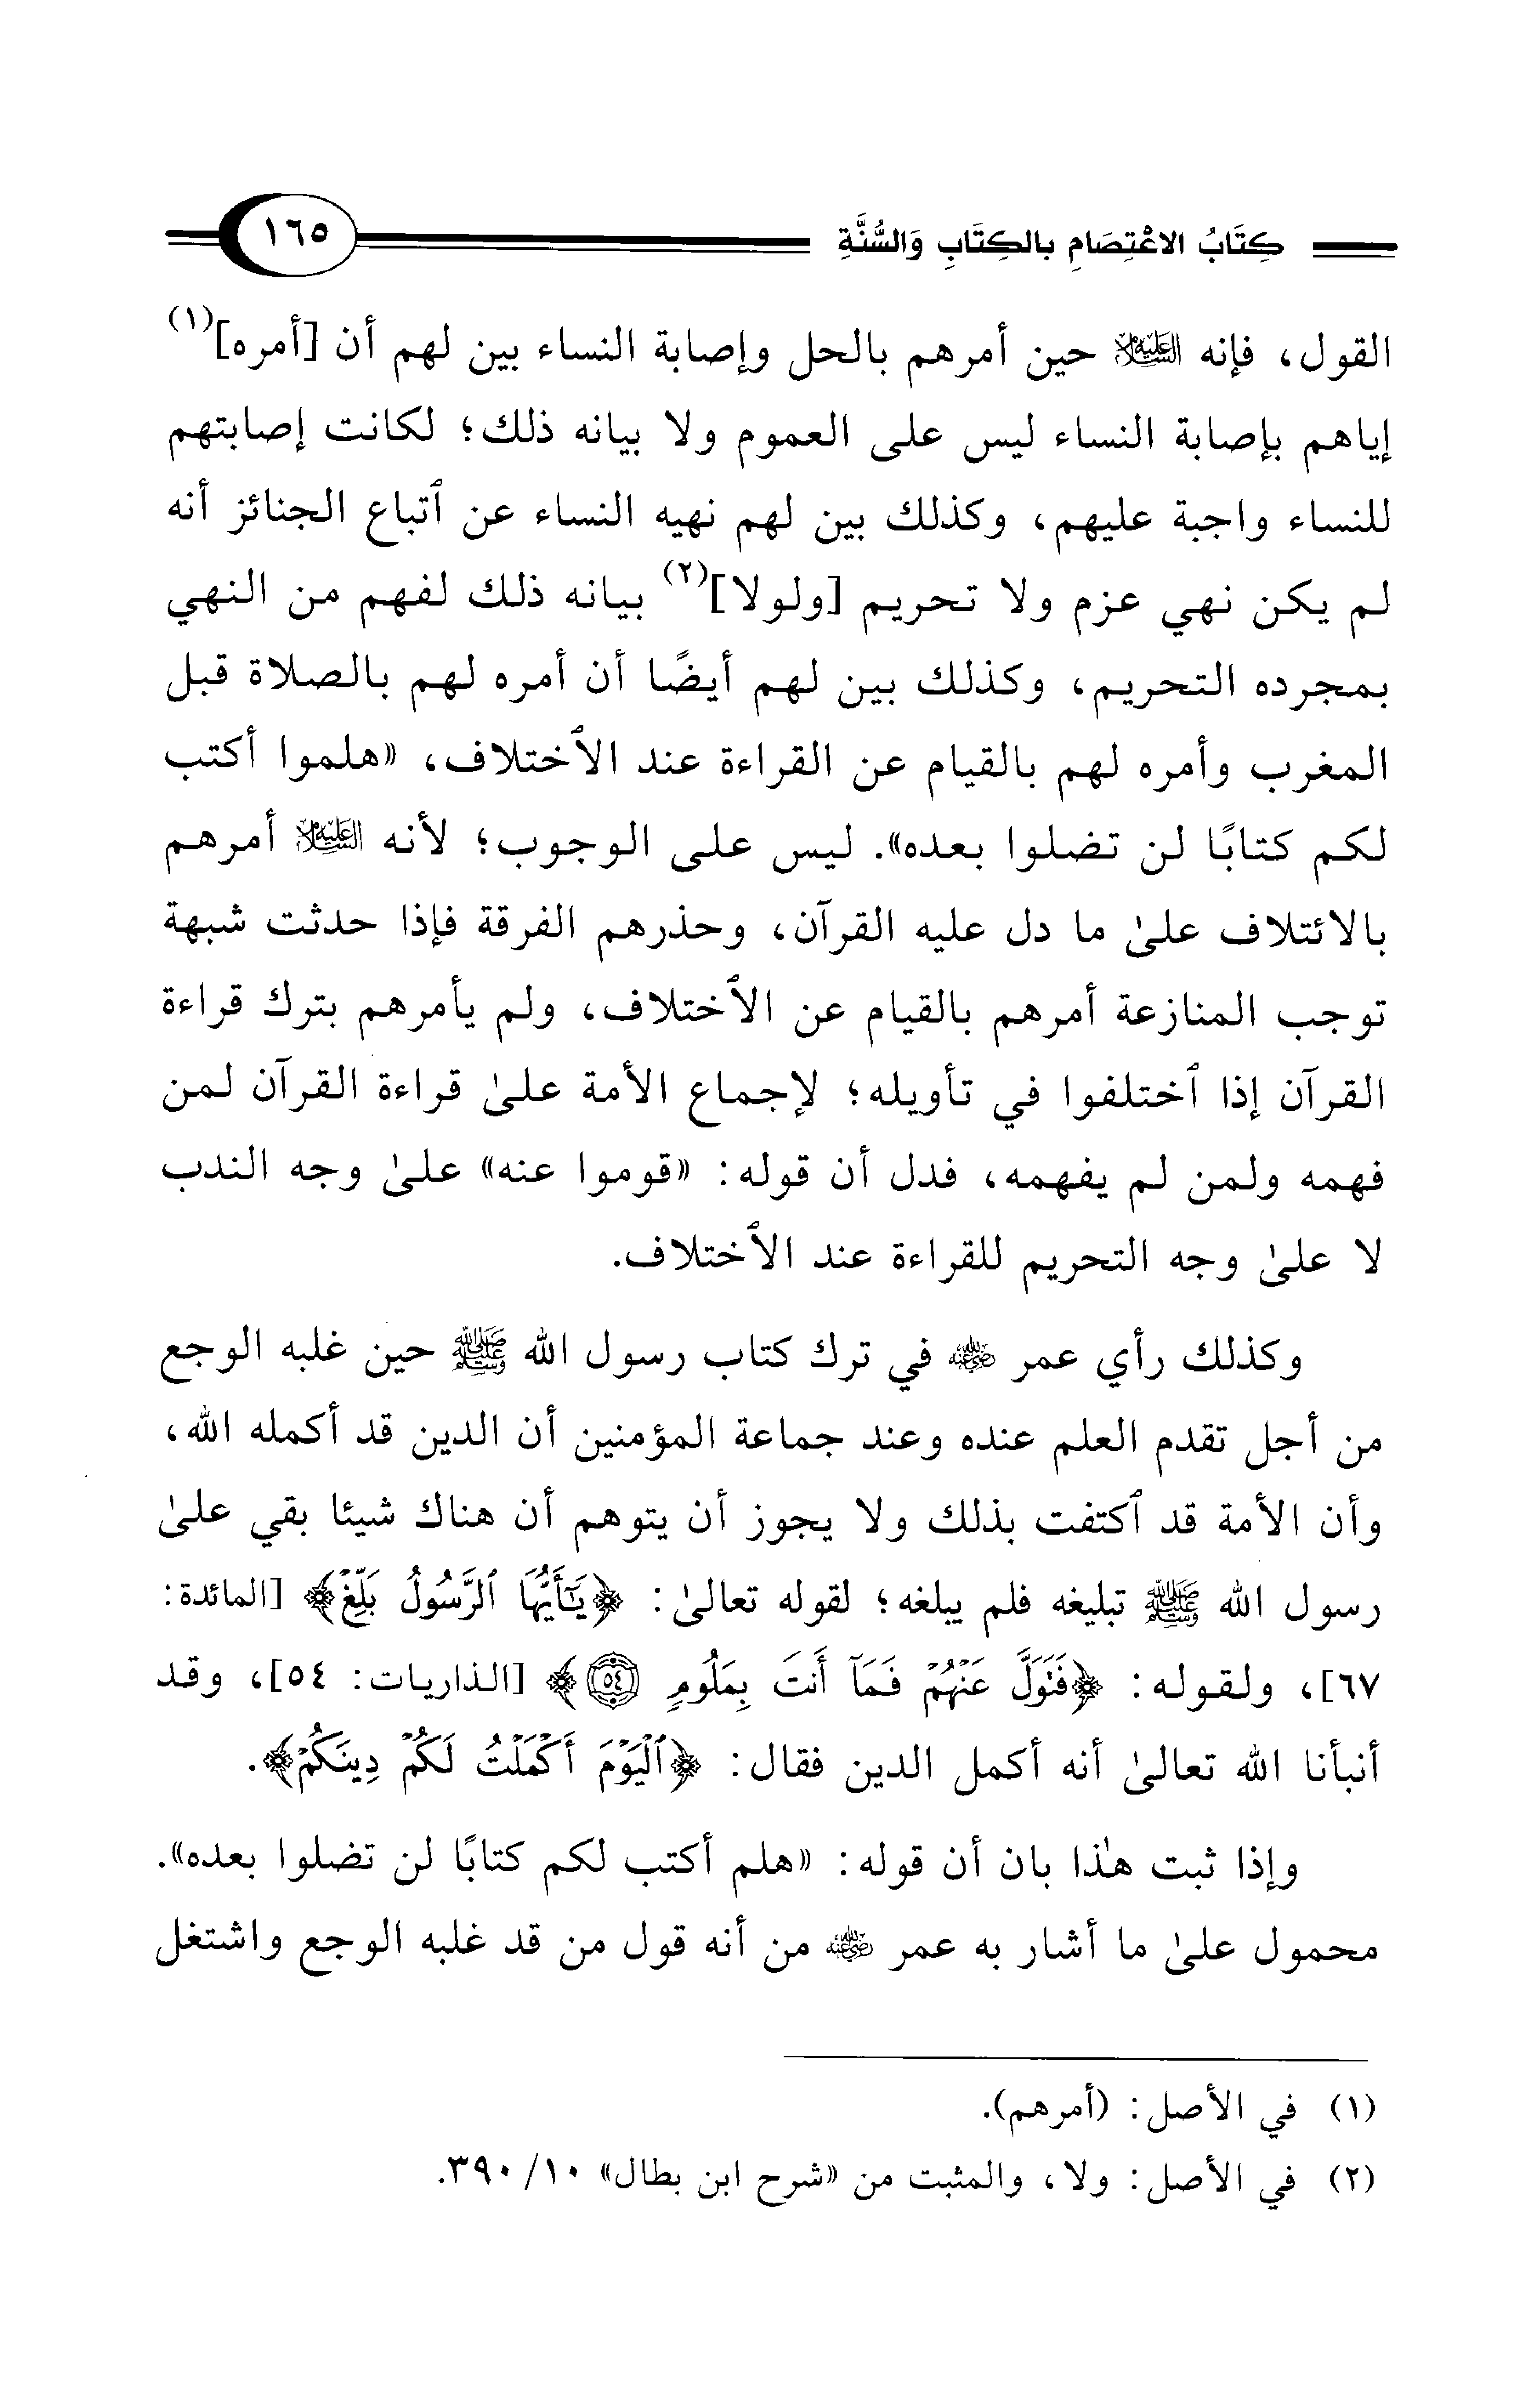 كِتَابُ الاعْتِصَامِ بالكِتَابِ وَالسُّنَّةِ ١٦٥
القول، فإنه عليه السلام حين أمرهم بالحل وإصابة النساء بين لهم أن [أمره](١)
إياهم بإصابة النساء ليس على العموم ولا بيانه ذلك؛ لكانت إصابتهم
للنساء واجبة عليهم، وكذلك بين لهم نهيه النساء عن ٱتباع الجنائز أنه
لم يكن نهي عزم ولا تحريم [ولولا](٢) بيانه ذلك لفهم من النهي
بمجرده التحريم، وكذلك بين لهم أيضًا أن أمره لهم بالصلاة قبل
المغرب وأمره لهم بالقيام عن القراءة عند الٱختلاف، «هلموا أكتب
لكم كتابًا لن تضلوا بعده». ليس على الوجوب؛ لأنه عليه السلام أمرهم
بالائتلاف علىٰ ما دل عليه القرآن، وحذرهم الفرقة فإذا حدثت شبهة
توجب المنازعة أمرهم بالقيام عن الٱختلاف، ولم يأمرهم بترك قراءة
القرآن إذا ٱختلفوا في تأويله؛ لإجماع الأمة علىٰ قراءة القرآن لمن
فهمه ولمن لم يفهمه، فدل أن قوله: «قوموا عنه» علىٰ وجه الندب
لا علىٰ وجه التحريم للقراءة عند الٱختلاف.
وكذلك رأي عمر رضي الله عنه في ترك كتاب رسول الله ﷺ حين غلبه الوجع
من أجل تقدم العلم عنده وعند جماعة المؤمنين أن الدين قد أكمله الله،
وأن الأمة قد ٱكتفت بذلك ولا يجوز أن يتوهم أن هناك شيئا بقي علىٰ
رسول الله ﷺ تبليغه فلم يبلغه؛ لقوله تعالىٰ: ﴿يَٰٓأَيُّهَا ٱلرَّسُولُ بَلِّغۡ﴾ [المائدة:
٦٧]، ولقوله: ﴿فَتَوَلَّ عَنۡهُمۡ فَمَآ أَنتَ بِمَلُومٖ ٥٤﴾ [الذاريات: ٥٤]، وقد
أنبأنا الله تعالىٰ أنه أكمل الدين فقال: ﴿ٱلۡيَوۡمَ أَكۡمَلۡتُ لَكُمۡ دِينَكُمۡ﴾.
وإذا ثبت هٰذا بان أن قوله: «هلم أكتب لكم كتابًا لن تضلوا بعده».
محمول علىٰ ما أشار به عمر رضي الله عنه من أنه قول من قد غلبه الوجع واشتغل
(١) في الأصل: (أمرهم).
(٢) في الأصل: ولا، والمثبت من «شرح ابن بطال» ١٠/ ٣٩٠.